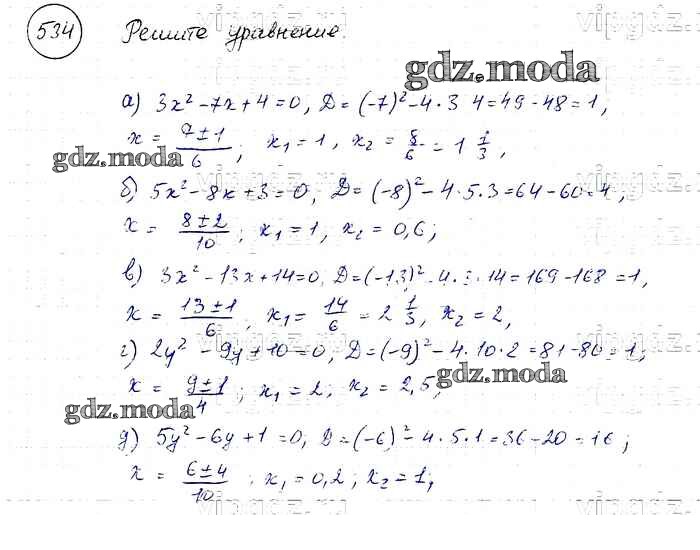 534 Решите уравнение.
gdz.moda
а) 3x² - 7x + 4 = 0, D = (-7)² - 4 · 3 4 = 49 - 48 = 1,
x = (7 ± 1)/6 ; x₁ = 1, x₂ = 8/6 = 1 1/3,
gdz.moda
б) 5x² - 8x + 3 = 0, D = (-8)² - 4 · 5 · 3 = 64 - 60 = 4,
x = (8 ± 2)/10 ; x₁ = 1, x₂ = 0,6;
в) 3x² - 13x + 14 = 0, D = (-13)² - 4 · 3 · 14 = 169 - 168 = 1,
x = (13 ± 1)/6 ; x₁ = 14/6 = 2 1/3, x₂ = 2,
г) 2y² - 9y + 10 = 0, D = (-9)² - 4 · 10 · 2 = 81 - 80 = 1;
x = (9 ± 1)/4 ; x₁ = 2; x₂ = 2,5;
gdz.moda
gdz.moda
д) 5y² - 6y + 1 = 0, D = (-6)² - 4 · 5 · 1 = 36 - 20 = 16;
x = (6 ± 4)/10 ; x₁ = 0,2; x₂ = 1;